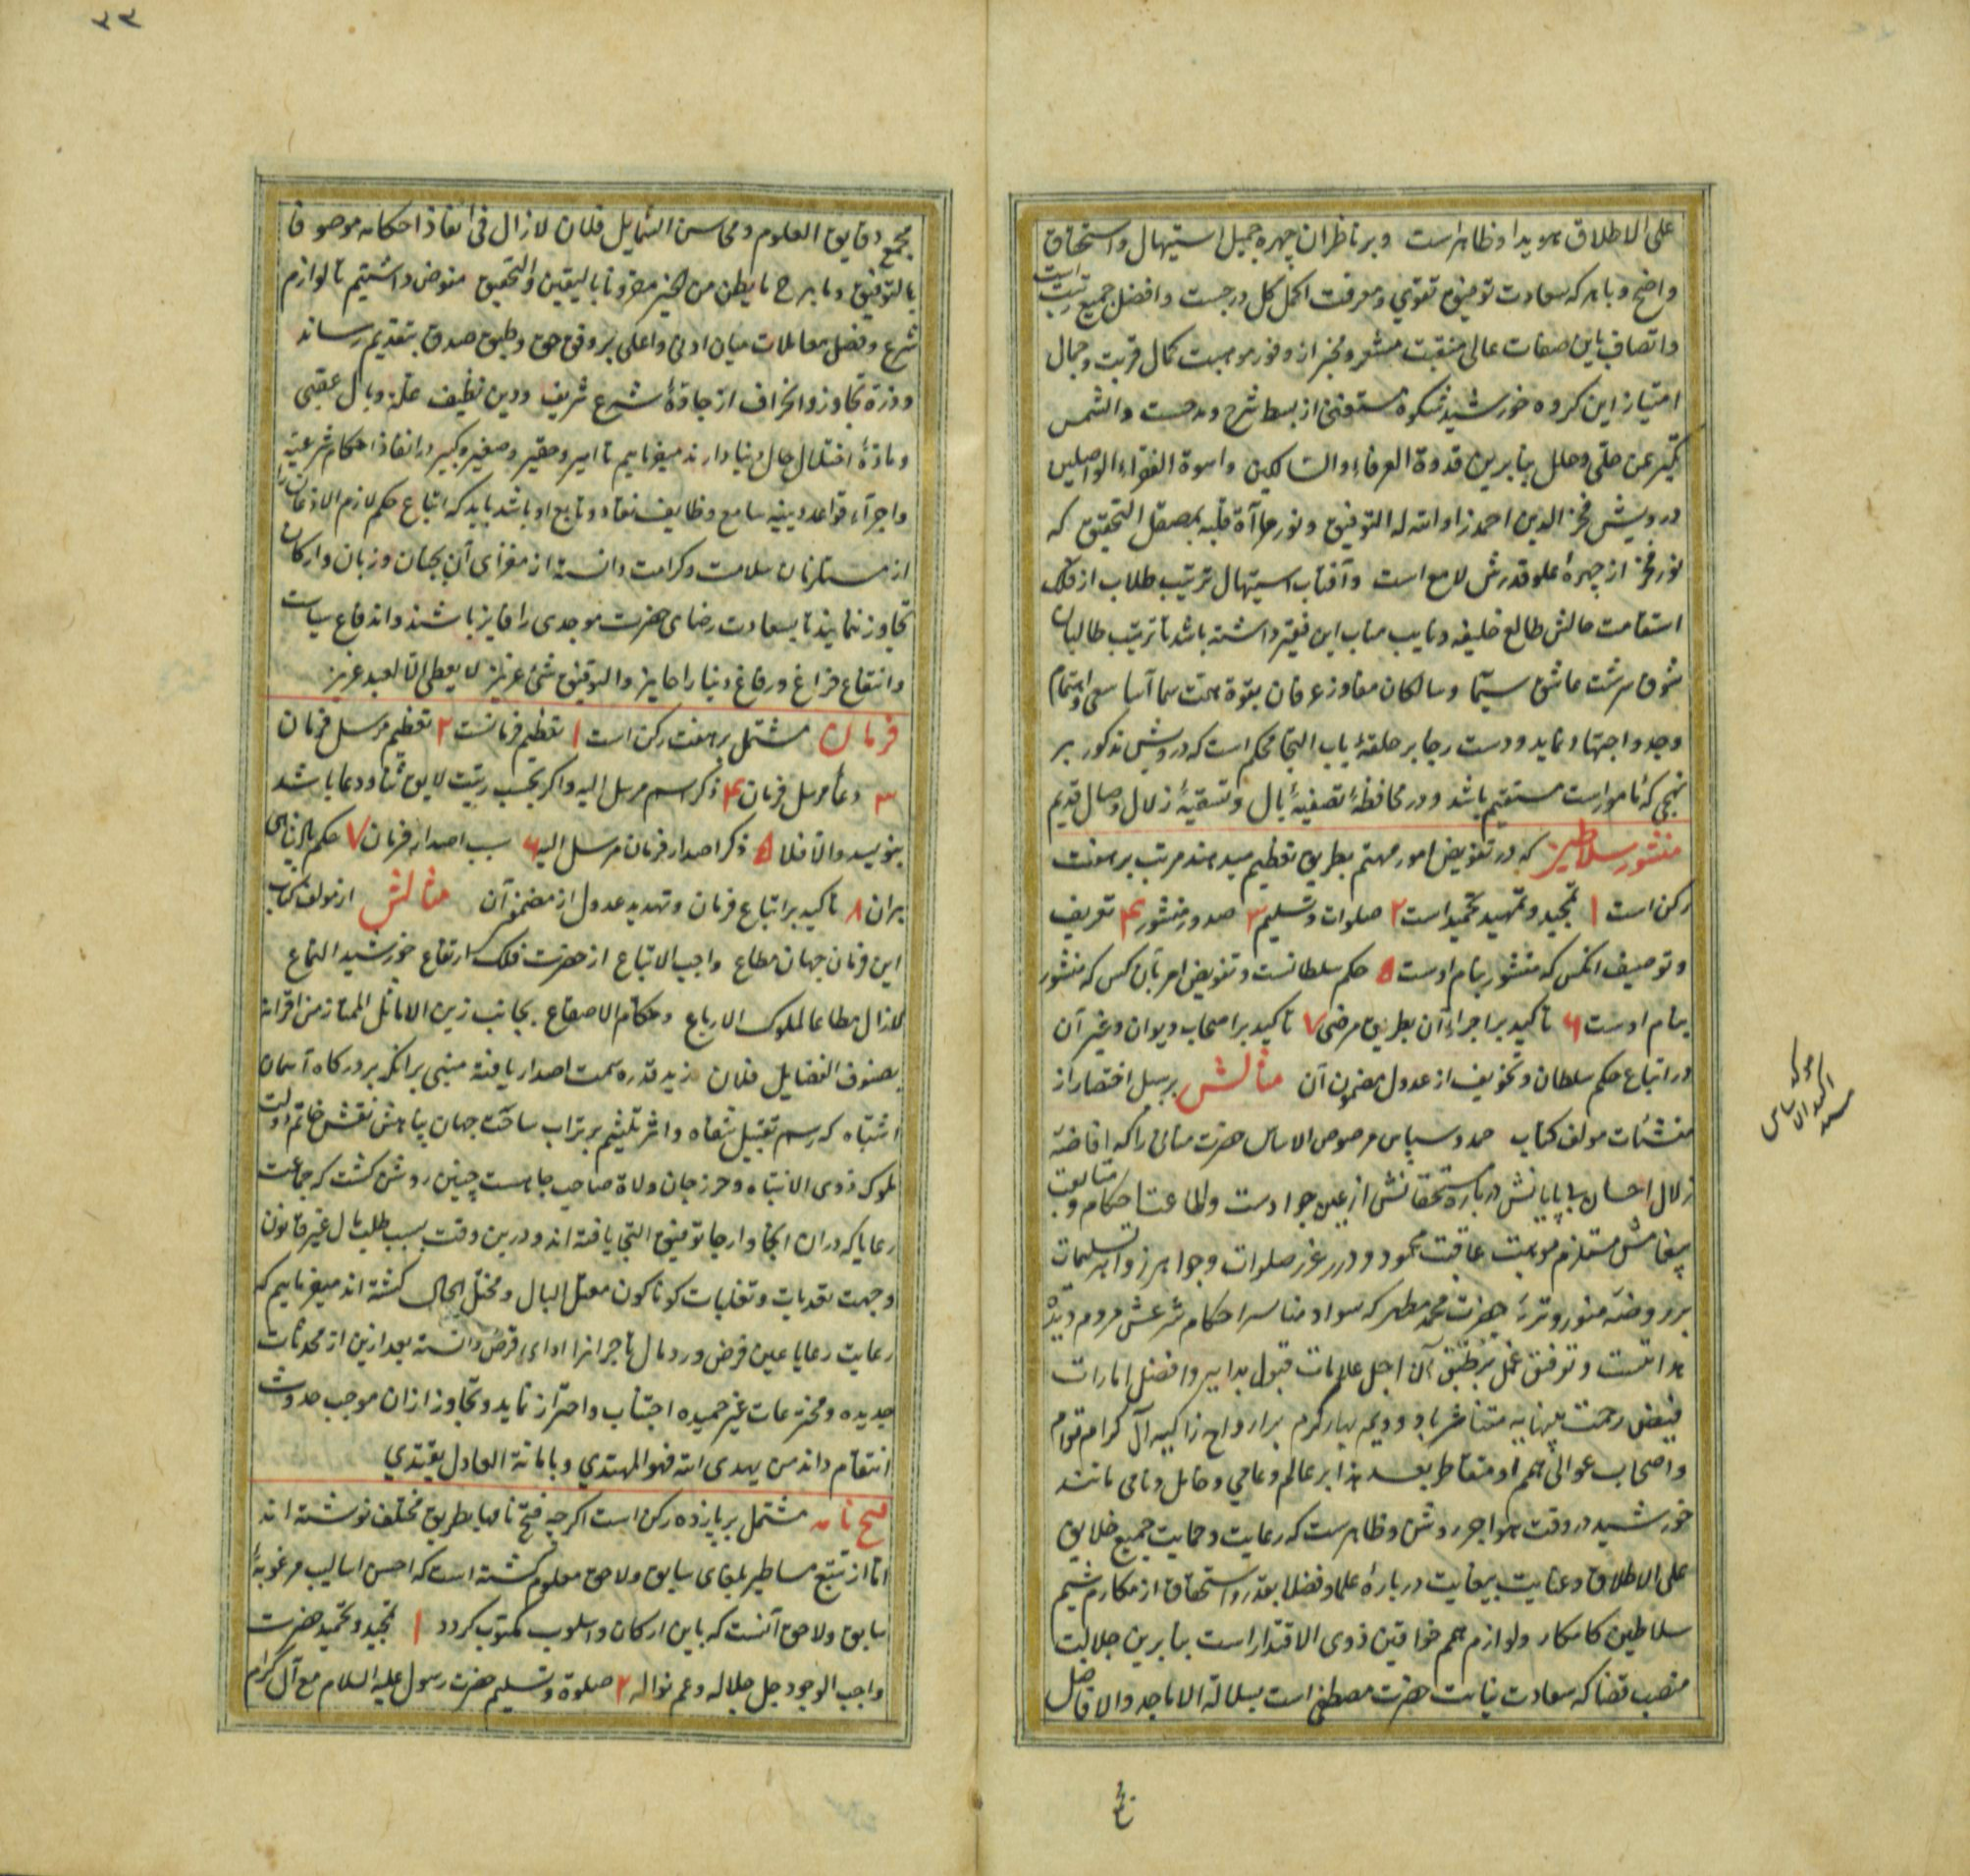 علی الاطلاق هویدا و ظاهر است و بر ناظران چهره جمیل استیهال و استحقاق
واضح و باهر که سعادت توفیق تقوی و معرفت اکمل کل درجست و افضل جمیع رتبت است
و اتصاف باین صفات عالی منقبت مشعر و مخبر از وفور موهبت کمال قربت و جمال
امتیاز این کروه خورشید شکوه مستغنی از بسط شرح و مدحست و الشمس
تکبر عن حلی و حلل بنابرین قدوة العرفاء و السالکین و اسوة الفقراء الواصلین
درویش فخر الدین احمد زاد الله له التوفیق و نور مرآة قلبه بصیقل التحقیق که
نور فخر از چهره علو قدرش لامع است و آفتاب استیهال تربیت طلاب از فلک
استقامت حالش طالع خلیفه و نایب مناب این فقیر داشته باشد تا تربیت طالبان
شوق سرشت عاشق سیما و سالکان مفاوز عرفان بقوة همت سما آسا سعی و اهتمام
وجد و اجتهاد نماید و دست رجا بر حلقهٔ باب التجا محکم است که درویش مذکور بر
نهجی که مامور است مستقیم باشد و در محافظهٔ تصفیهٔ بال و تسقیهٔ زلال وصال قدیم
منشور سلاطین که در تفویض امور مهتم بطریق تعظیم میدهند مرتب بر هفت
رکن است ۱ تمجید و تمهید تحمید است ۲ صلوات و تسلیم ۳ صدور منشور ۴ تعریف
و توصیف انکس که منشور بنام اوست ۵ حکم سلطانست و تفویض امر بآن کس که منشور
بنام اوست ۶ تاکید بر اجراء آن بطریق مرضی ۷ تاکید بر اصحاب دیوان و غیر آن
در اتباع حکم سلطان و تخویف از عدول مضمون آن مثالش بر سبیل اختصار از
منشئات مولف کتاب حمد و سپاس مرصوص الاساس حضرت منانی را که افاضهٔ
زلال احسان بی پایانش در باره مستحقانش از عین جودست و اطاعت احکام و متابعت
پیغامش مستلزم موهبت عاقبت محمود و درر غرر صلوات و جواهر زواهر تسلیمات
بر روضهٔ منور و تربهٔ حضرت محمد مطهر که سواد مناسر احکام شرعش مردم دیده
هدایتست و توفیق عمل بر طبق آن اجل علامات قبول بدایر و افضل امارات
فیض رحمت بینهایه متناثر باد و دیمه بهار کرم بر ارواح زاکیه آل کرام قوام
و اصحاب عوالی همم او متقاطر بعد هذا بر عالم و عامی و خامل و نامی مانند
خورشید در وقت هواجر روشن و ظاهرست که رعایت و حمایت جمیع خلایق
علی الاطلاق و عنایت بیغایت در بارهٔ علما و فضلا بقدر استحقاق از مکارم شیم
سلاطین کامکار و لوازم همم خواقین ذوی الاقتدار است بنابرین جلالت
منصب قضا که سعادت نیابت حضرت مصطفی است بسلالة الاماجد و الافاضل
مجمع دقایق العلوم و محاسن الشمایل فلان لازال فی انفاذ احکامه موصوفا
بالتوفیق و ما برح ما یظن من الخیر مقرونا بالیقین و التحقیق مفوض داشتیم تا لوازم
شرع و فصل معاملات میان ادنی و اعلی بر وفق حق و طبق صدق بتقدیم رساند
و ذرهٔ تجاوز و انحراف از جادهٔ شرع شریف و دین نظیف علت وبال عقبی
و مادهٔ اختلال حال دنیا دارند میفرماییم تا امیر و حقیر و صغیر و کبیر در انفاذ احکام شرعیه
و اجراء قواعد دینیه سامع وظایف منقاد و تابع او باشد باید که اتباع حکم لازم الاذعان را
از مستلزمات سلامت و کرامت دانسته از مغزای آن بجنان و زبان و ارکان
تجاوز ننمایند تا بسعادت رضای حضرت موجدی را فایز باشند و اندفاع سیاست
و انتفاع فراغ و رفاغ دنیا را حایز و التوفیق شیء عزیز لا یعطی الا لعبد عزیز
فرمان مشتمل بر هفت رکن است ۱ تعظیم فرمانست ۲ تعظیم مرسل فرمان
۳ دعاء مرسل فرمان ۴ ذکر اسم مرسل الیه و اکر بحسب رتبت لایق ثنا و دعا باشد
بنویسد و الا فلا ۵ ذکر اصدار فرمان مرسل الیه ۶ سبب اصدار فرمان ۷ حکم
بران ۸ تاکید بر اتباع فرمان و تهدید عدول از مضمون آن مثالش از مولف کتاب
این فرمان جهان مطاع واجب الاتباع از حضرت فلک ارتفاع خورشید التماع
لازال مطاعا لملوک الارباع و حکام الاصقاع بجانب زین الاماثل الممتاز من اقرانه
بصنوف الفضایل فلان زید قدره سمت اصدار یافته مبنی بر انکه بر درکاه آسمان
اشتباه که رسم تقبیل شفاه و اثر تلثیم بر تراب ساحت جهان پناهش نقش خاتم دولت
ملوک ذوی الانتباه و حرز جان ولاة صاحب جاهست چنین روشن کشت که جماعت
رعایا که دران انجا و ارجا توفیق التجا یافته اند و درین وقت بسبب طلب مال غیر قانون
و جهت تعدیات و تغلبات کوناکون معتل البال و مختل الحال کشته اند میفرماییم که
رعایت رعایا عین فرض و رد مال تاجرانرا ادای قرض دانسته بعد ازین از محدثات
جدیده و مخترعات غیر حمیده اجتناب و احتراز نماید و تجاوز ازان موجب حدوث
انتقام داند من یهدی الله فهو المهتدی و بامانة العادل یقتدی
فتح نامه مشتمل بر پانزده رکن است اکر چه فتح نامها بطریق مختلف نوشته اند
اما از تتبع مساطیر بلغای سابق و لاحق معلوم کشته است که احسن اسالیب مرغوبهٔ
سابق و لاحق آنست که باین ارکان و اسلوب مکتوب کردد ۱ تمجید و تحمید حضرت
واجب الوجود جل جلاله و عم نواله ۲ صلوة و تسلیم حضرت رسول علیه السلام مع آل کرام